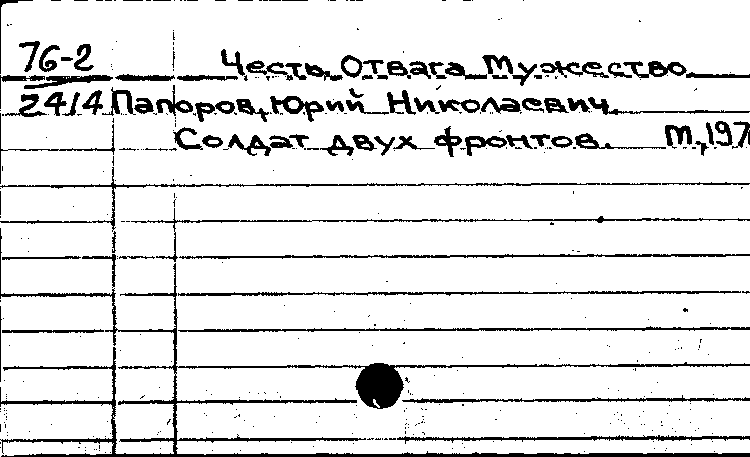 76-2 Честь, Отвага Мужество
2414 Папоров, Юрий Николаевич.
Солдат двух фронтов. М., 197